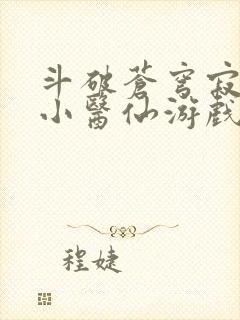 斗破苍穹寂
小醫仙游戲
程婕